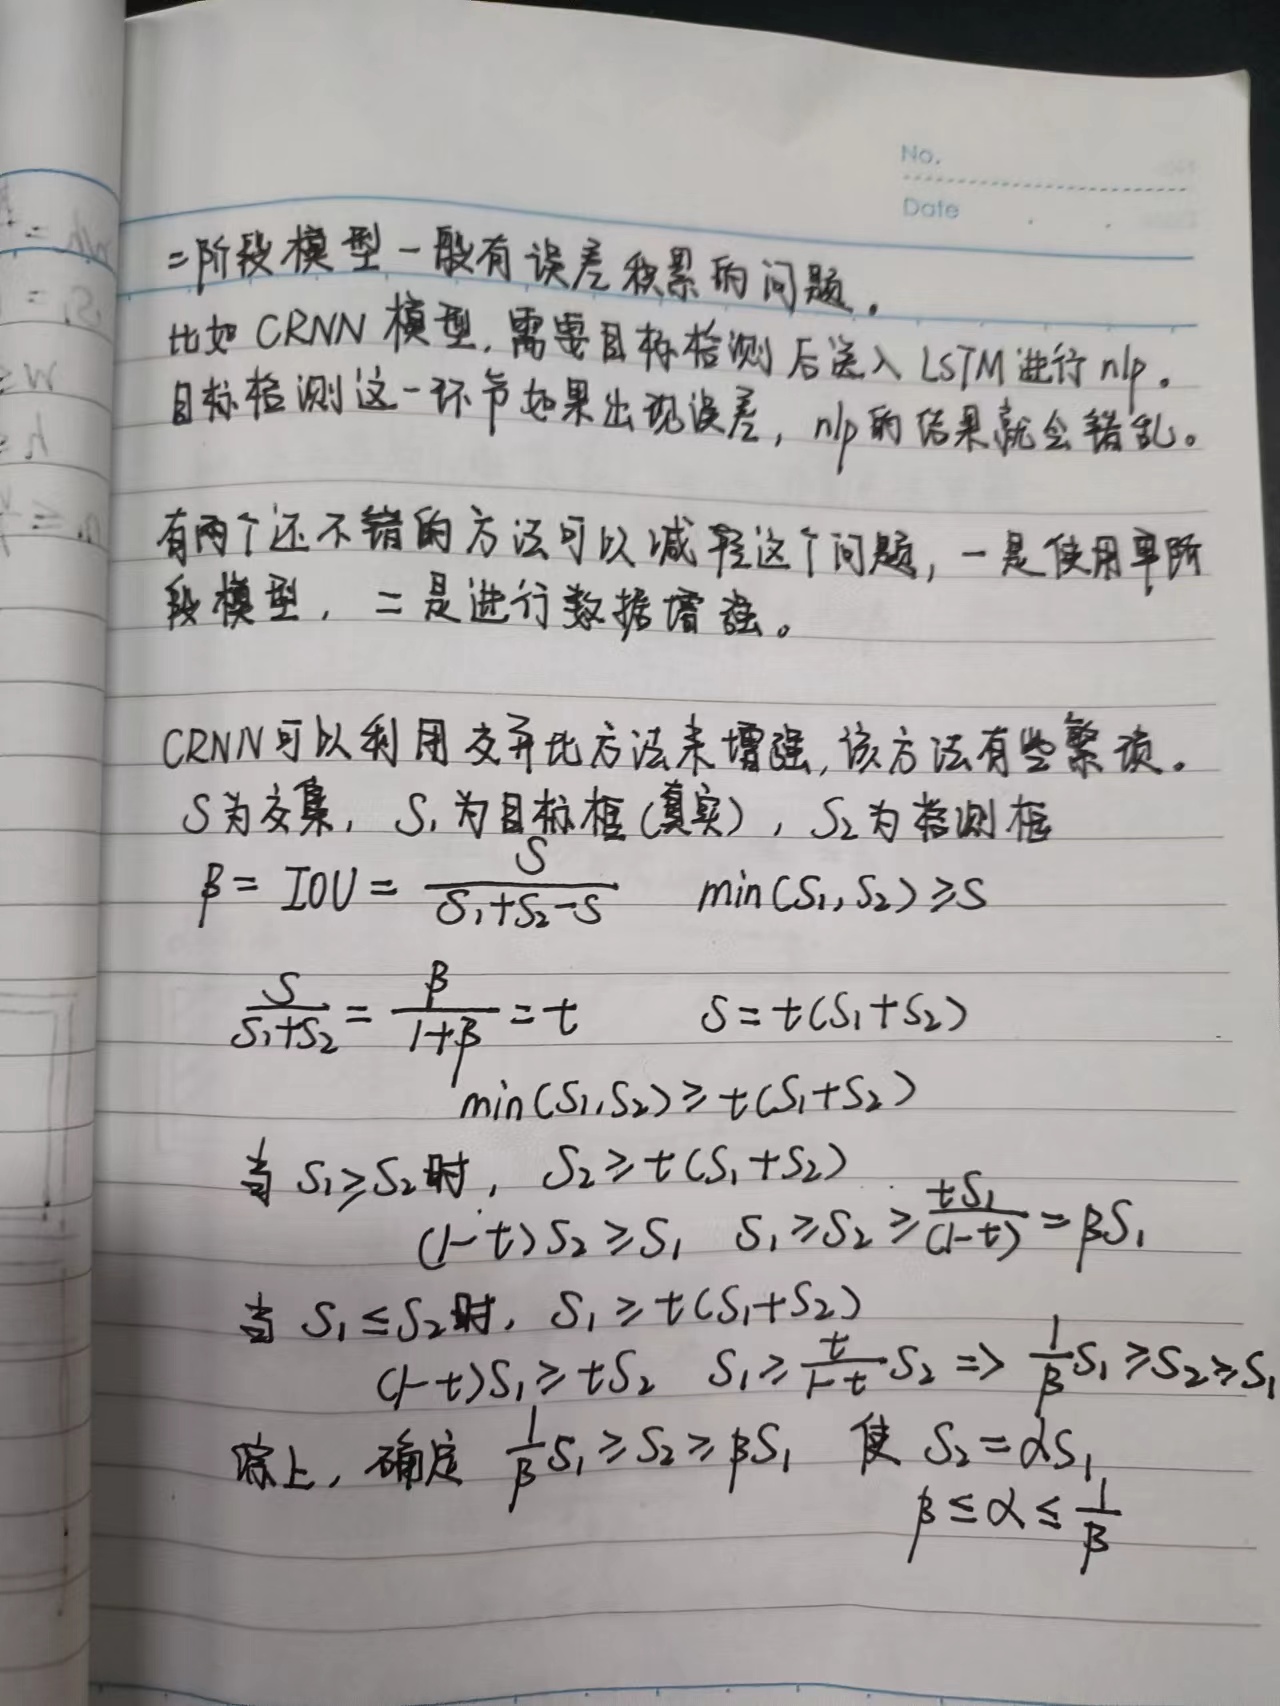 No.
Date
二阶段模型一般有误差积累的问题。
比如CRNN模型,需要目标检测后送入LSTM进行nlp。
目标检测这一环节如果出现误差,nlp的结果就会错乱。
有两个还不错的方法可以减轻这个问题,一是使用单阶
段模型,二是进行数据增强。
CRNN可以利用交并比方法来增强,该方法有些繁琐。
S为交集,S₁为目标框(真实),S₂为检测框
β = IOU = S/(S₁+S₂-S) min(S₁,S₂)≥S
S/(S₁+S₂) = β/(1+β) = t S=t(S₁+S₂)
min(S₁,S₂)≥t(S₁+S₂)
当S₁≥S₂时, S₂≥t(S₁+S₂)
(1-t)S₂≥S₁ S₁≥S₂≥tS₁/(1-t)=βS₁
当S₁≤S₂时, S₁≥t(S₁+S₂)
(1-t)S₁≥tS₂ S₁≥t/(1-t)S₂ => 1/βS₁≥S₂≥S₁
综上,确定 1/βS₁≥S₂≥βS₁ 使 S₂=αS₁
β≤α≤1/β